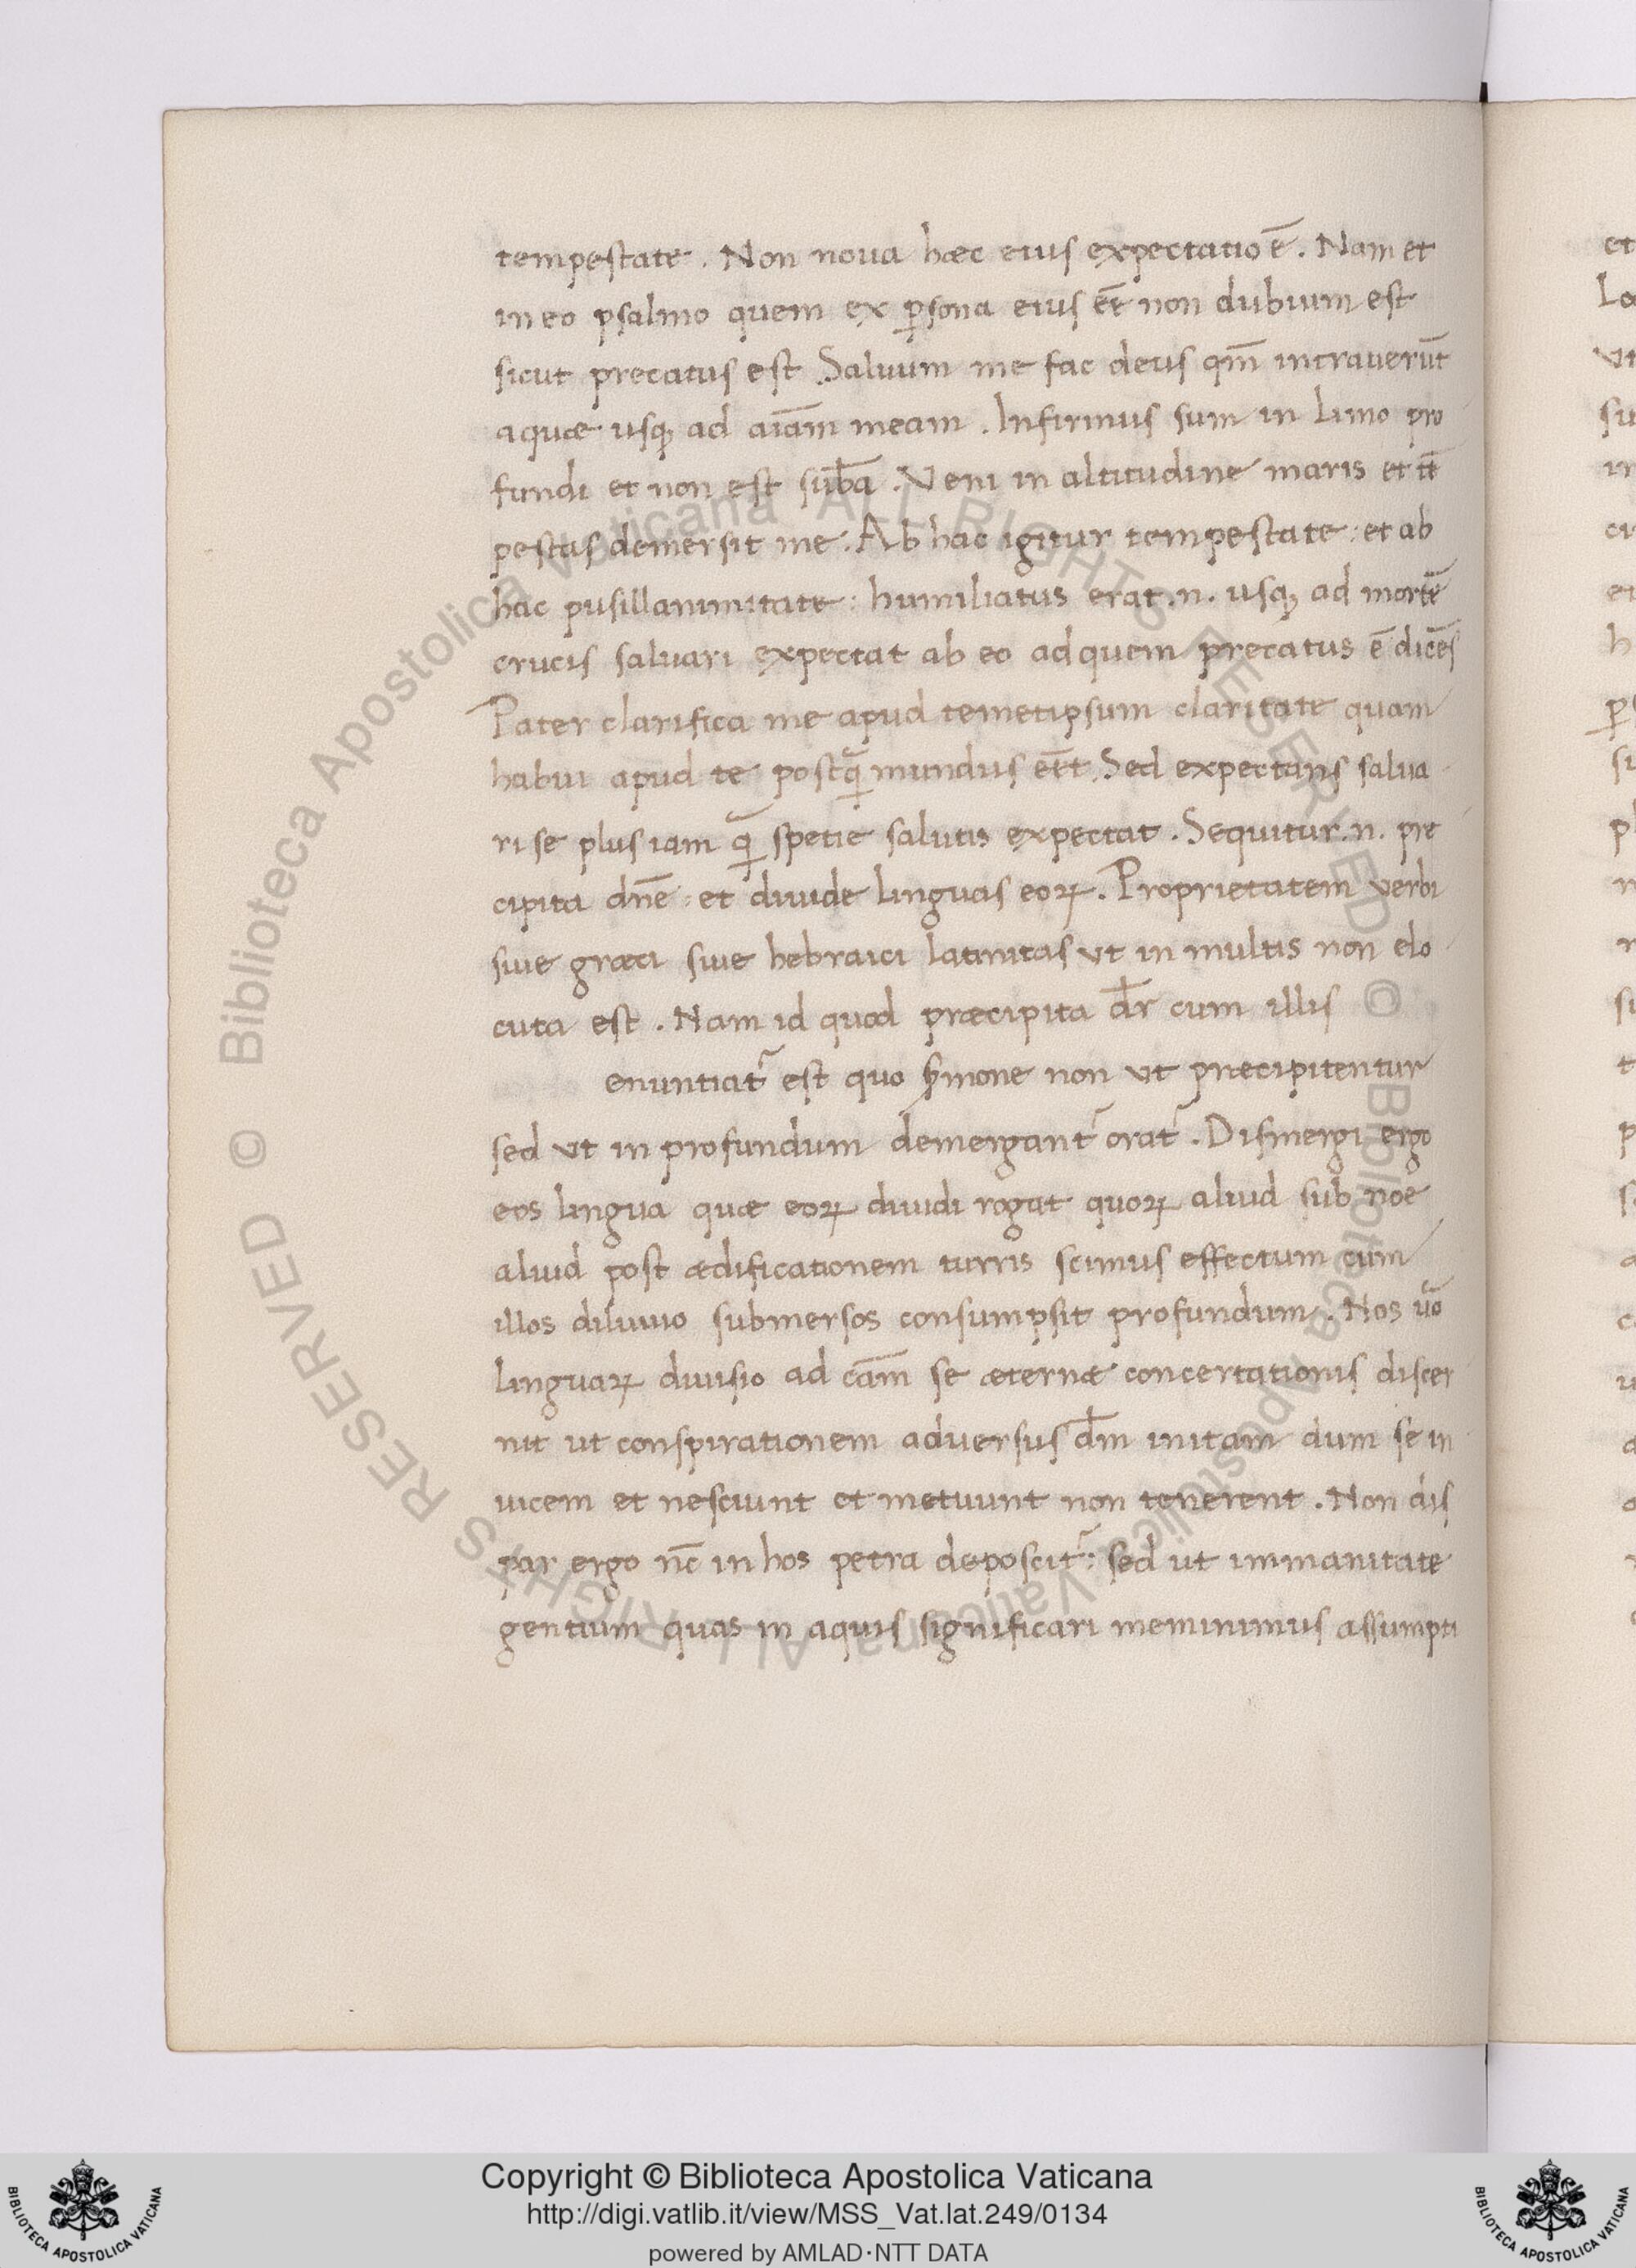 tempestate. Non noua hæc eius expectatio ē. Nam et
in eo psalmo quem ex ꝑsona eius eē̄ non dubium est
sicut precatus est Saluum me fac deus qm̄ intrauerūt
aquæ usqꝫ ad aīam meam. Infirmus sum in limo pro
fundi et non est sub̄a. Veni in altitudine maris et tē
pestas demersit me. Ab hac igitur tempestate: et ab
hac pusillanimitate: humiliatus erat .n. usqꝫ ad mortē
crucis saluari expectat ab eo ad quem precatus ē dicēs
Pater clarifica me apud temetipsum claritate quam
habui apud te postꝙ̄ mundus eēt. Sed expectans salua
ri se plus iam ꝙ̄ spetie salutis expectat. Sequitur .n. pre
cipita dn̄e: et diuide linguas eoꝝ. Proprietatem verbi
siue græci siue hebraici latinitas vt in multis non elo
cuta est. Nam id quod præcipita dr̄ cum illis
enuntiat᷑ est quo ẜmone non vt præcipitentur
sed vt in profundum demergant᷑ orat᷑. Dismergi ergo
eos lingua quæ eoꝝ diuidi rogat quoꝝ aliud sub noe
aliud post ædificationem turris scimus effectum cum
illos diluuio submersos consumpsit profundum. Nos ūo
linguaꝝ diuisio ad cām se æternæ concertationis discer
nit ut conspirationem aduersus dm̄ initam dum se in
uicem et nesciunt et metuunt non tenerent. Non dis
par ergo nc̄ in hos petra deposcit᷑: sed ut immanitate
gentium quas in aquis significari meminimus assumpti
et
Lo
vt
su
in
h
ꝑ
Biblioteca Apostolica Vaticana ALL RIGHTS RESERVED ©
Biblioteca Apostolica Vaticana ALL RIGHTS RESERVED ©
Copyright © Biblioteca Apostolica Vaticana
http://digi.vatlib.it/view/MSS_Vat.lat.249/0134
powered by AMLAD·NTT DATA
BIBLIOTECA APOSTOLICA VATICANA
BIBLIOTECA APOSTOLICA VATICANA